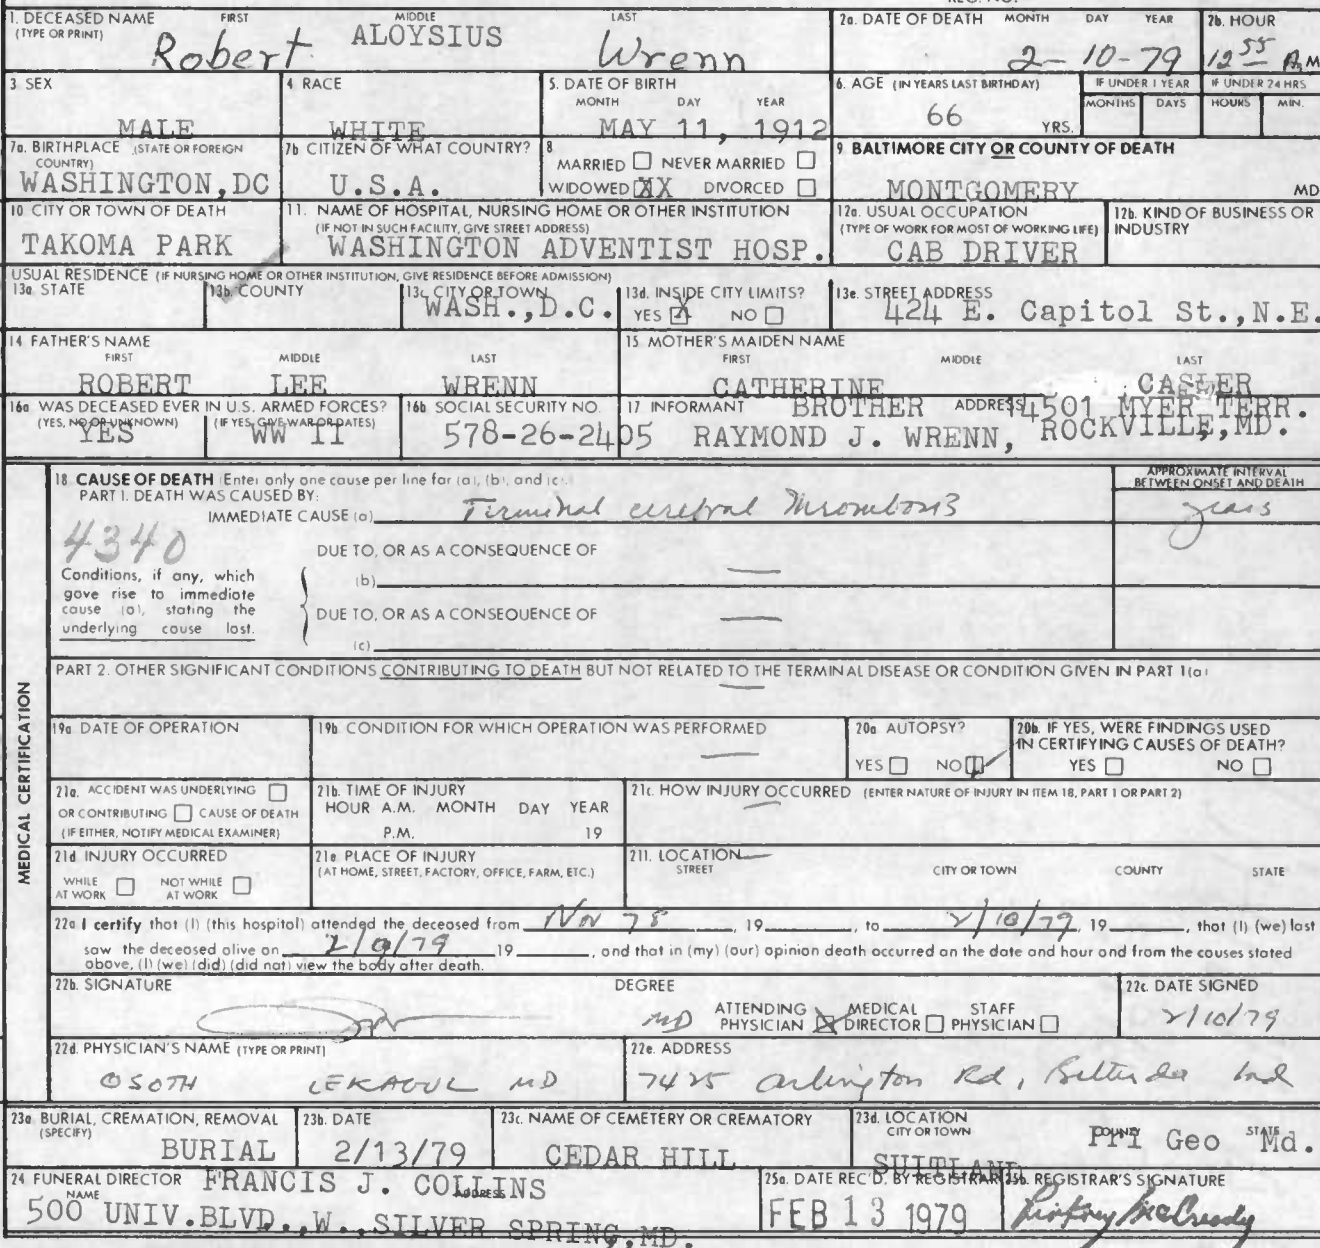 1. DECEASED NAME FIRST MIDDLE LAST
(TYPE OR PRINT)
Robert ALOYSIUS Wrenn
2a. DATE OF DEATH MONTH DAY YEAR
2-10-79
2b. HOUR
12 55 A.M
3 SEX
MALE
4 RACE
WHITE
5. DATE OF BIRTH
MONTH DAY YEAR
MAY 11, 1912
6. AGE (IN YEARS LAST BIRTHDAY)
66 YRS.
IF UNDER 1 YEAR
MONTHS DAYS
IF UNDER 24 HRS
HOURS MIN.
7a. BIRTHPLACE (STATE OR FOREIGN
COUNTRY)
WASHINGTON,DC
7b CITIZEN OF WHAT COUNTRY?
U.S.A.
8
MARRIED NEVER MARRIED
WIDOWED XX DIVORCED
9 BALTIMORE CITY OR COUNTY OF DEATH
MONTGOMERY MD
10 CITY OR TOWN OF DEATH
TAKOMA PARK
11. NAME OF HOSPITAL, NURSING HOME OR OTHER INSTITUTION
(IF NOT IN SUCH FACILITY, GIVE STREET ADDRESS)
WASHINGTON ADVENTIST HOSP.
12a. USUAL OCCUPATION
(TYPE OF WORK FOR MOST OF WORKING LIFE)
CAB DRIVER
12b. KIND OF BUSINESS OR
INDUSTRY
USUAL RESIDENCE (IF NURSING HOME OR OTHER INSTITUTION, GIVE RESIDENCE BEFORE ADMISSION)
13a STATE
13b COUNTY
13c CITY OR TOWN
WASH.,D.C.
13d. INSIDE CITY LIMITS?
YES X NO
13e. STREET ADDRESS
424 E. Capitol St.,N.E.
14 FATHER'S NAME
FIRST MIDDLE LAST
ROBERT LEE WRENN
15 MOTHER'S MAIDEN NAME
FIRST MIDDLE LAST
CATHERINE CASLER
16a WAS DECEASED EVER IN U.S. ARMED FORCES?
(YES, NO OR UNKNOWN) (IF YES, GIVE WAR OR DATES)
YES WW II
16b SOCIAL SECURITY NO.
578-26-2405
17 INFORMANT BROTHER ADDRESS 4501 MYER TERR.
RAYMOND J. WRENN, ROCKVILLE,MD.
MEDICAL CERTIFICATION
18 CAUSE OF DEATH (Enter only one cause per line for (a), (b), and (c).
PART I. DEATH WAS CAUSED BY:
APPROXIMATE INTERVAL
BETWEEN ONSET AND DEATH
IMMEDIATE CAUSE (a) Terminal cerebral thrombosis years
4340
DUE TO, OR AS A CONSEQUENCE OF
(b)
Conditions, if any, which
gave rise to immediate
cause (a), stating the
underlying cause last.
DUE TO, OR AS A CONSEQUENCE OF
(c)
PART 2. OTHER SIGNIFICANT CONDITIONS CONTRIBUTING TO DEATH BUT NOT RELATED TO THE TERMINAL DISEASE OR CONDITION GIVEN IN PART 1(a)
19a DATE OF OPERATION
19b CONDITION FOR WHICH OPERATION WAS PERFORMED
20a AUTOPSY?
YES NO
20b. IF YES, WERE FINDINGS USED
IN CERTIFYING CAUSES OF DEATH?
YES NO
21a. ACCIDENT WAS UNDERLYING
OR CONTRIBUTING CAUSE OF DEATH
(IF EITHER, NOTIFY MEDICAL EXAMINER)
21b. TIME OF INJURY
HOUR A.M. MONTH DAY YEAR
P.M. 19
21c. HOW INJURY OCCURRED (ENTER NATURE OF INJURY IN ITEM 18, PART 1 OR PART 2)
21d INJURY OCCURRED
WHILE AT WORK NOT WHILE AT WORK
21e PLACE OF INJURY
(AT HOME, STREET, FACTORY, OFFICE, FARM, ETC.)
21f. LOCATION
STREET CITY OR TOWN COUNTY STATE
22a I certify that (I) (this hospital) attended the deceased from Nov 78, 19, to 2/10/79, 19, that (I) (we) last
saw the deceased alive on 2/9/79 19, and that in (my) (our) opinion death occurred on the date and hour and from the causes stated
above, (I) (we) (did) (did not) view the body after death.
22b. SIGNATURE DEGREE
MD
ATTENDING PHYSICIAN MEDICAL DIRECTOR STAFF PHYSICIAN
22c. DATE SIGNED
2/10/79
22d. PHYSICIAN'S NAME (TYPE OR PRINT)
OSOTH LEKAGUL MD
22e. ADDRESS
7425 Arlington Rd, Bethesda Md
23a BURIAL, CREMATION, REMOVAL
(SPECIFY)
BURIAL
23b. DATE
2/13/79
23c. NAME OF CEMETERY OR CREMATORY
CEDAR HILL
23d. LOCATION
CITY OR TOWN COUNTY STATE
SUITLAND Pri Geo Md.
24 FUNERAL DIRECTOR FRANCIS J. COLLINS
NAME ADDRESS
500 UNIV.BLVD.,W.,SILVER SPRING,MD.
25a. DATE REC'D. BY REGISTRAR
FEB 13 1979
25b. REGISTRAR'S SIGNATURE